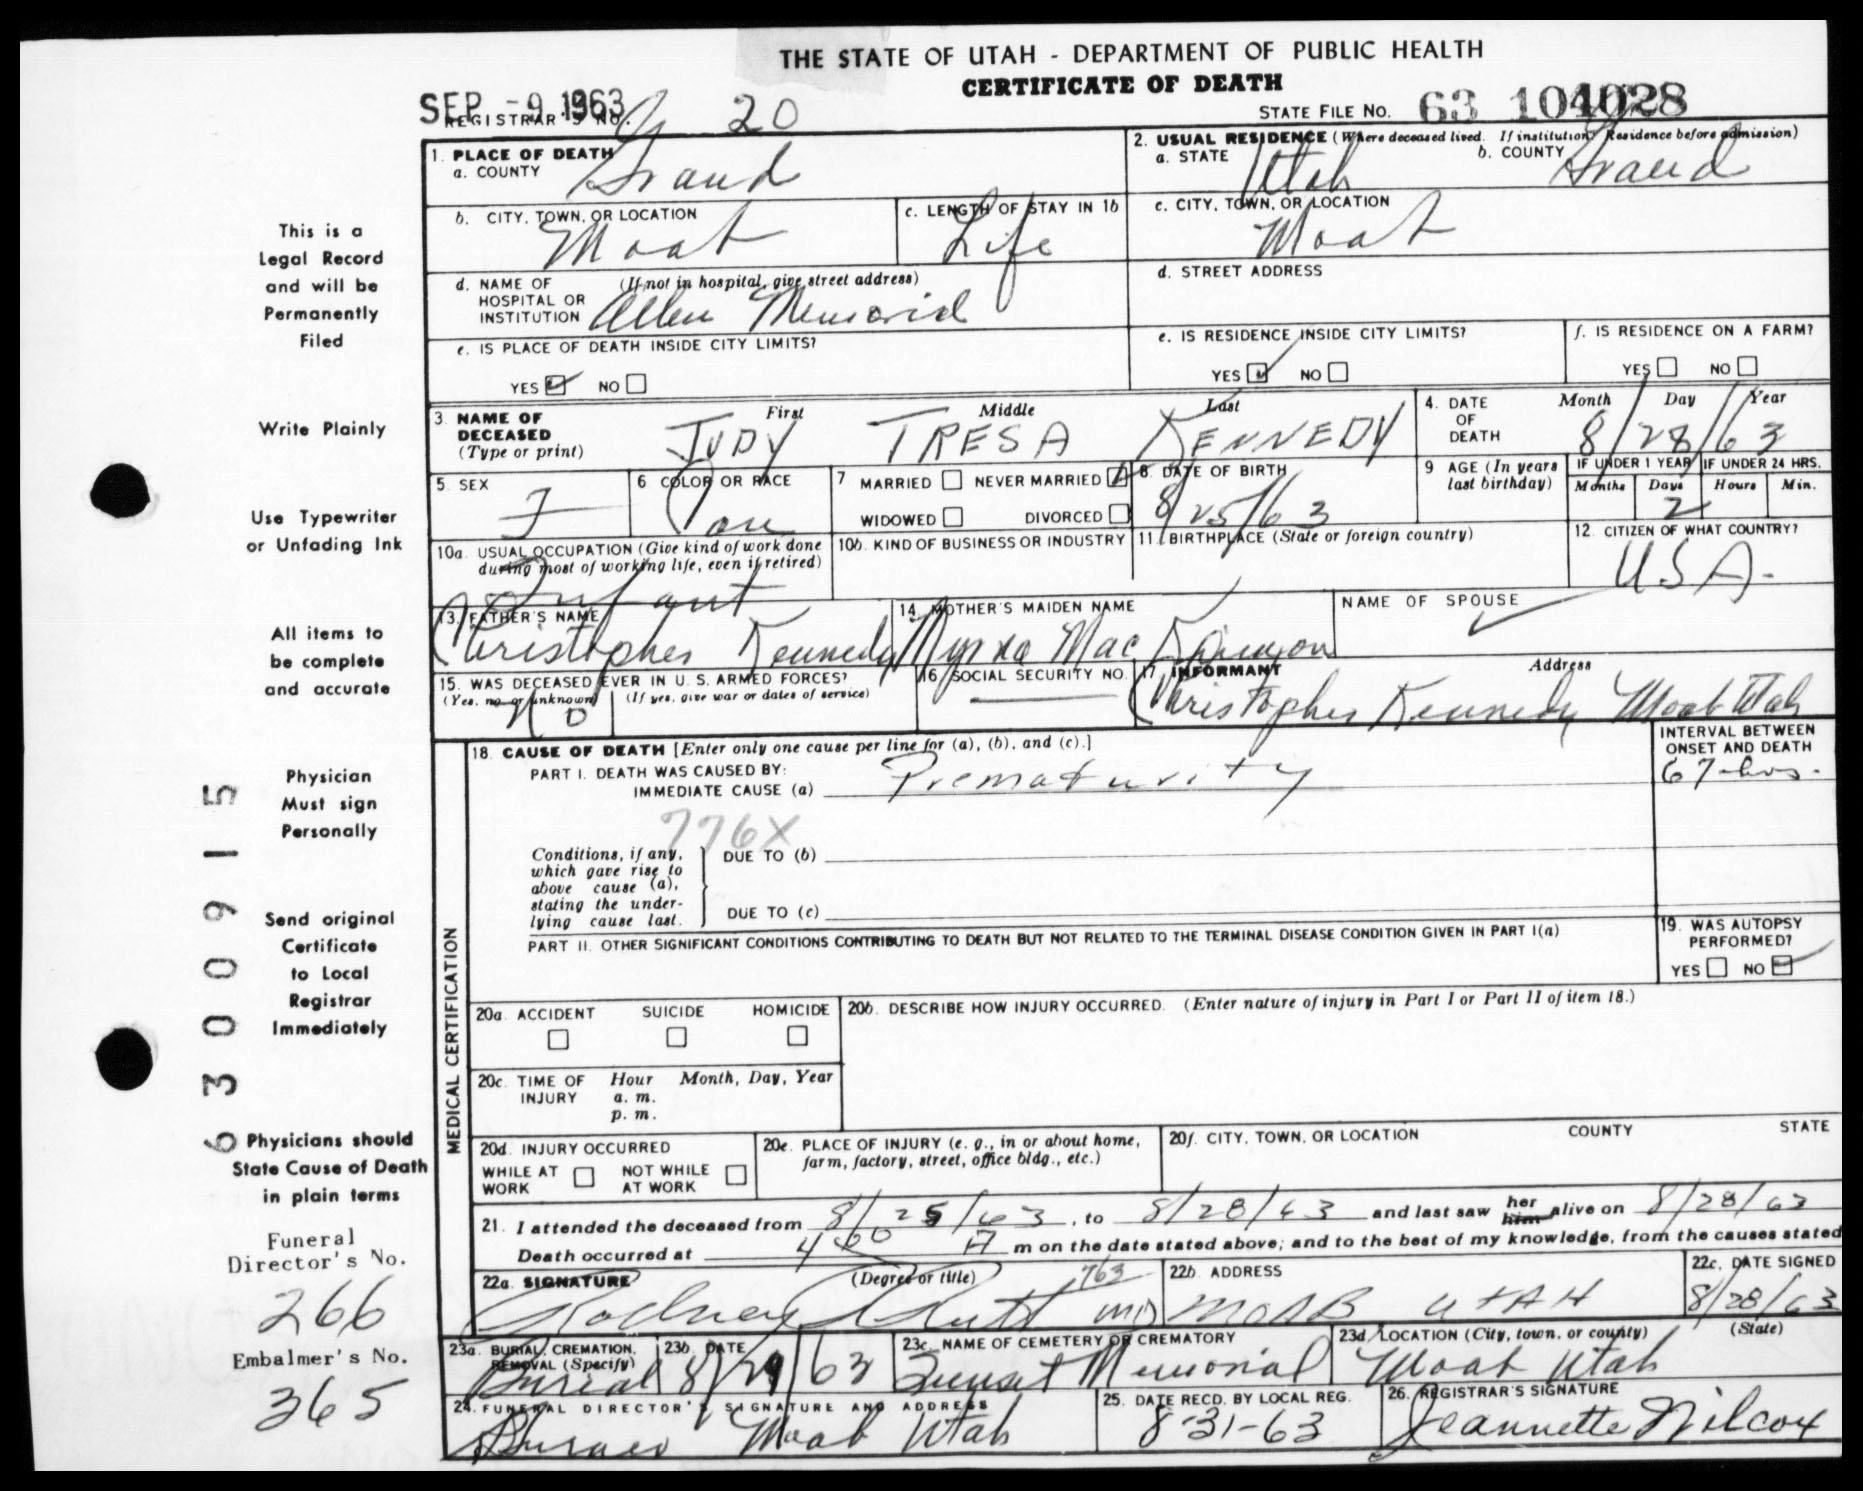 THE STATE OF UTAH - DEPARTMENT OF PUBLIC HEALTH
CERTIFICATE OF DEATH
SEP -9 1963
REGISTRAR'S NO. 20
STATE FILE NO. 63 104028
1. PLACE OF DEATH
a. COUNTY Grand
2. USUAL RESIDENCE (Where deceased lived. If institution: Residence before admission)
a. STATE Utah b. COUNTY Grand
b. CITY, TOWN, OR LOCATION Moab
c. LENGTH OF STAY IN 1b Life
c. CITY, TOWN, OR LOCATION Moab
d. NAME OF HOSPITAL OR INSTITUTION (If not in hospital, give street address) Allen Memorial
d. STREET ADDRESS
e. IS PLACE OF DEATH INSIDE CITY LIMITS?
YES NO
e. IS RESIDENCE INSIDE CITY LIMITS?
YES NO
f. IS RESIDENCE ON A FARM?
YES NO
3. NAME OF DECEASED (Type or print)
First Middle Last
JUDY TRESA KENNEDY
4. DATE OF DEATH
Month Day Year
8/28/63
5. SEX F
6 COLOR OR RACE
7 MARRIED NEVER MARRIED
WIDOWED DIVORCED
8. DATE OF BIRTH
8/25/63
9 AGE (In years last birthday)
IF UNDER 1 YEAR IF UNDER 24 HRS.
Months Days Hours Min.
2
10a. USUAL OCCUPATION (Give kind of work done during most of working life, even if retired)
Infant
10b. KIND OF BUSINESS OR INDUSTRY
11. BIRTHPLACE (State or foreign country)
12. CITIZEN OF WHAT COUNTRY?
USA.
13. FATHER'S NAME
Christopher Kennedy
14. MOTHER'S MAIDEN NAME
Mac
NAME OF SPOUSE
15. WAS DECEASED EVER IN U. S. ARMED FORCES?
(Yes, no, or unknown) (If yes, give war or dates of service)
No
16. SOCIAL SECURITY NO.
17. INFORMANT Address
Christopher Kennedy Moab Utah
MEDICAL CERTIFICATION
18. CAUSE OF DEATH [Enter only one cause per line for (a), (b), and (c).]
PART I. DEATH WAS CAUSED BY:
IMMEDIATE CAUSE (a) Prematurity
INTERVAL BETWEEN ONSET AND DEATH
67 hrs.
776X
Conditions, if any, which gave rise to above cause (a), stating the underlying cause last.
DUE TO (b)
DUE TO (c)
PART II. OTHER SIGNIFICANT CONDITIONS CONTRIBUTING TO DEATH BUT NOT RELATED TO THE TERMINAL DISEASE CONDITION GIVEN IN PART I(a)
19. WAS AUTOPSY PERFORMED?
YES NO
20a. ACCIDENT SUICIDE HOMICIDE
20b. DESCRIBE HOW INJURY OCCURRED. (Enter nature of injury in Part I or Part II of item 18.)
20c. TIME OF INJURY Hour Month, Day, Year
a. m.
p. m.
20d. INJURY OCCURRED
WHILE AT WORK NOT WHILE AT WORK
20e. PLACE OF INJURY (e. g., in or about home, farm, factory, street, office bldg., etc.)
20f. CITY, TOWN, OR LOCATION COUNTY STATE
21. I attended the deceased from 8/25/63, to 8/28/63 and last saw her him alive on 8/28/63
Death occurred at 4 00 A m on the date stated above; and to the best of my knowledge, from the causes stated
22a. SIGNATURE (Degree or title) 763
Rodney MD
22b. ADDRESS
MOAB UTAH
22c. DATE SIGNED
8/28/63
23a. BURIAL, CREMATION, REMOVAL (Specify)
Burial
23b. DATE
8/29/63
23c. NAME OF CEMETERY OR CREMATORY
Sunset Memorial
23d. LOCATION (City, town, or county) (State)
Moab Utah
24. FUNERAL DIRECTOR'S SIGNATURE AND ADDRESS
Moab Utah
25. DATE RECD. BY LOCAL REG.
8-31-63
26. REGISTRAR'S SIGNATURE
Jeannette Wilcox
This is a
Legal Record
and will be
Permanently
Filed
Write Plainly
Use Typewriter
or Unfading Ink
All items to
be complete
and accurate
Physician
Must sign
Personally
Send original
Certificate
to Local
Registrar
Immediately
Physicians should
State Cause of Death
in plain terms
Funeral
Director's No.
266
Embalmer's No.
365
6300915